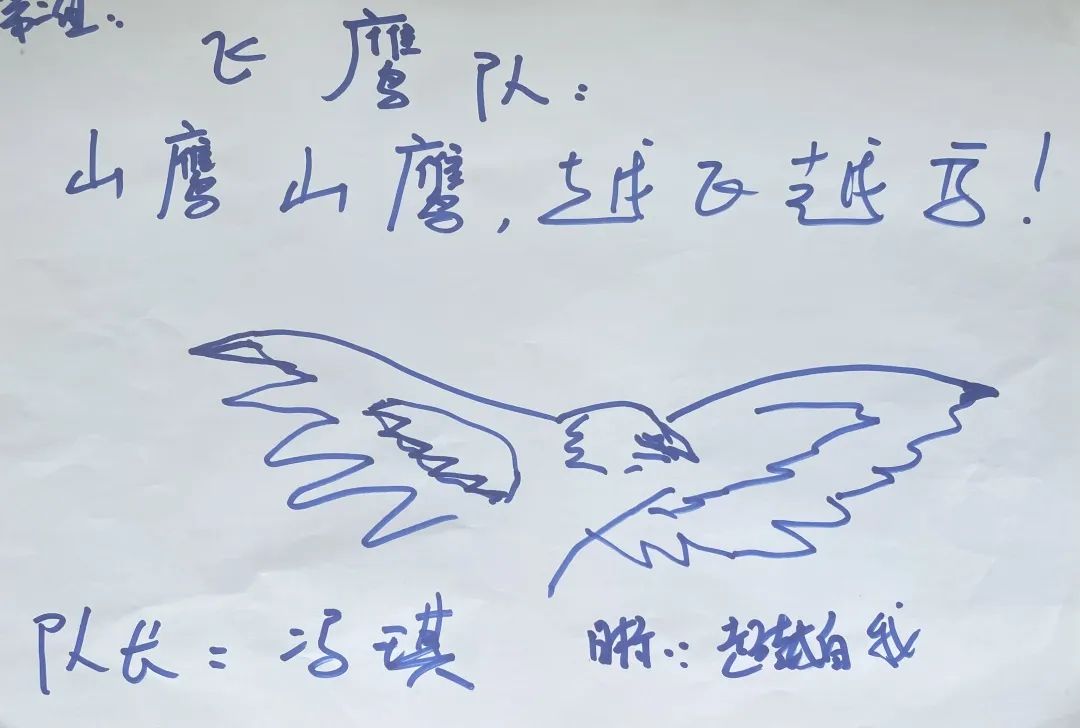 第二组:
飞鹰队:
山鹰山鹰,越飞越高!
队长:冯琪
目标:超越自我